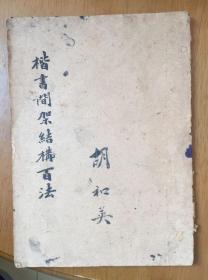 楷書間架結構百法
胡和英